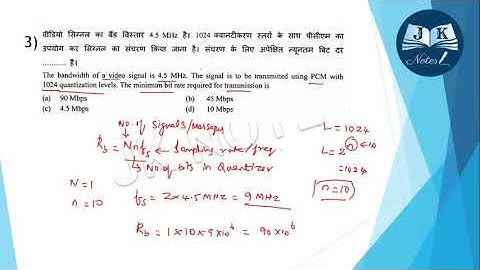 3)
वीडियो सिग्नल का बैंड विस्तार 4.5 MHz है। 1024 क्वानटीकरण स्तरों के साथ पीसीएम का
उपयोग कर सिग्नल का संचरण किया जाना है। संचरण के लिए अपेक्षित न्यूनतम बिट दर
............ है।
The bandwidth of a video signal is 4.5 MHz. The signal is to be transmitted using PCM with
1024 quantization levels. The minimum bit rate required for transmission is
(a) 90 Mbps (b) 45 Mbps
(c) 4.5 Mbps (d) 10 Mbps
J K
Notes
No. of Signals/Messages
R_b = N n f_s ← Sampling rate/freq.
↳ No. of bits in Quantizer
L = 1024
L = 2^n ← 10
= 1024
n = 10
N = 1
n = 10
f_s = 2 × 4.5 MHz = 9 MHz
R_b = 1 × 10 × 9 × 10^6 = 90 × 10^6